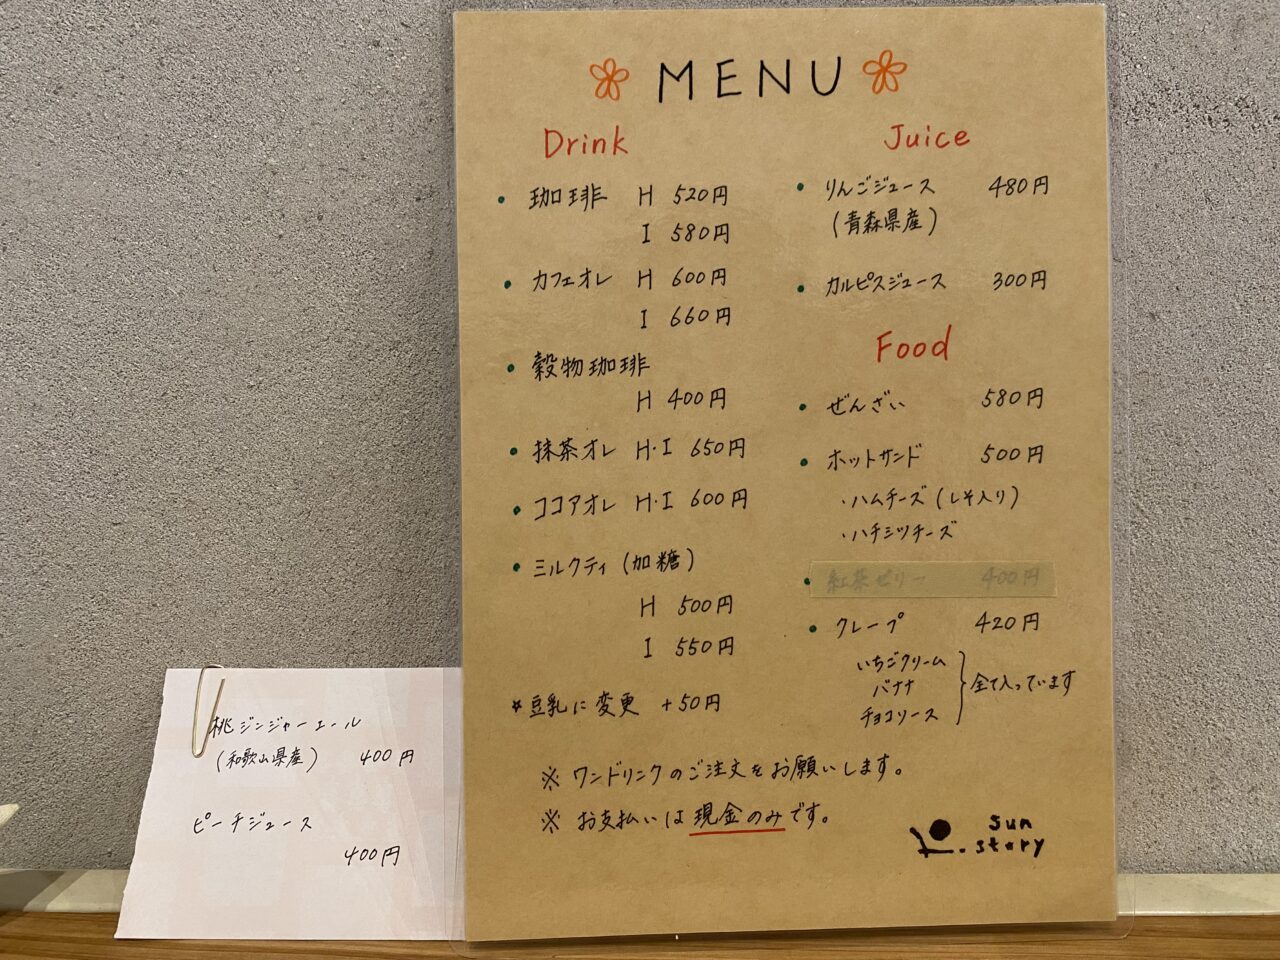 MENU
Drink
・珈琲 H 520円
I 580円
・カフェオレ H 600円
I 660円
・穀物珈琲
H 400円
・抹茶オレ H・I 650円
・ココアオレ H・I 600円
・ミルクティ (加糖)
H 500円
I 550円
☆豆乳に変更 +50円
Juice
・りんごジュース 480円
(青森県産)
・カルピスジュース 300円
Food
・ぜんざい 580円
・ホットサンド 500円
・ハムチーズ (しそ入り)
・ハチミツチーズ
・紅茶ゼリー 400円
・クレープ 420円
いちごクリーム
バナナ
チョコソース
全て入っています
※ ワンドリンクのご注文をお願いします。
※ お支払いは現金のみです。
sun
story
桃ジンジャーエール
(和歌山県産) 400円
ピーチジュース
400円